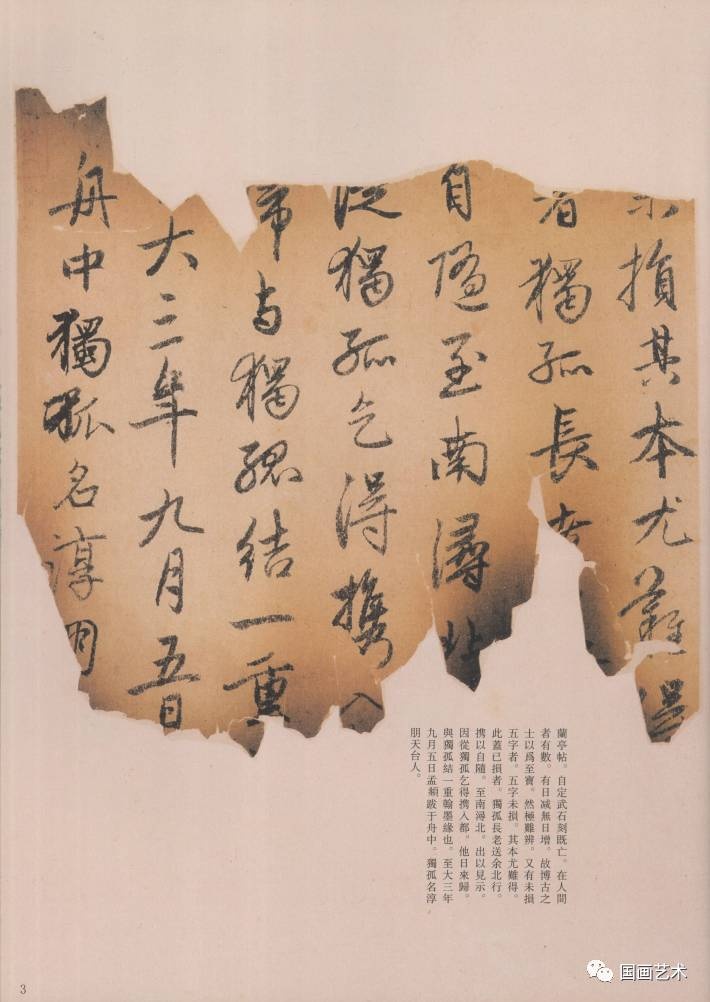 未損其本尤難得
者獨孤長老
自隨至南潯北
從獨孤乞得攜入
歸與獨孤結一重
大三年九月五日
舟中獨孤名淳朋
蘭亭帖。自定武石刻既亡。在人間
者有數。有日减無日增。故博古之
士以爲至寶。然極難辨。又有未損
五字者。五字未損。其本尤難得。
此蓋已損者。獨孤長老送余北行。
携以自隨。至南潯北。出以見示。
因從獨孤乞得携入都。他日來歸。
與獨孤結一重翰墨緣也。至大三年
九月五日孟頫跋于舟中。獨孤名淳
朋天台人。
3
国画艺术